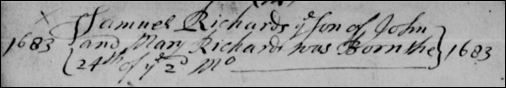 Samuel Richards yͤ son of John
1683 {and Mary Richards was Born the} 1683
24ᵗʰ of yͤ 2ᵈ Mᵒ